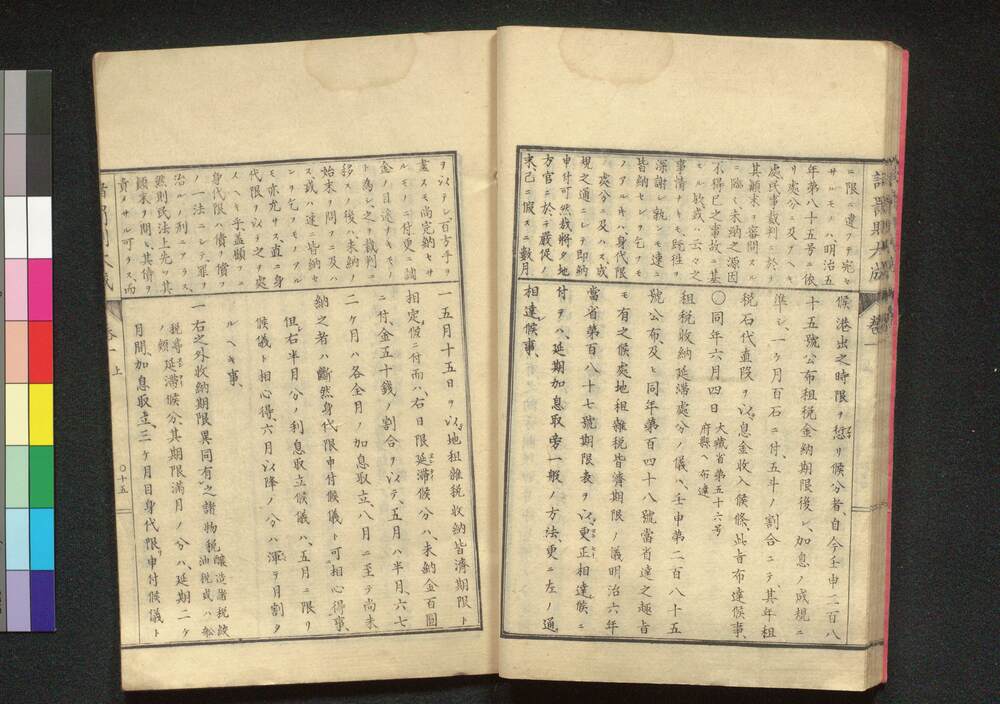 ニ限ニ違フテ完納
サルモノハ明治五
年第八十五号ニ後
リ處分ニ及フヘキ
處民事裁判ニ於テ
其顚末ヲ審問スル
ニ臨ミ未納之源因
不得已之事故ニ基
モル欤或ハ云々之
事情ナトモ既往ヲ
深謝シ執レモ速ニ
皆納セン┐ヲ乞フモ
ノアルキハ身代限
ノ處分ニ及ハス或
規之通ニシテ即納
申付可然哉將タ地
方官ニ於テ嚴促ノ
末已ニ假スニ數月
候港出之時限ヲ愆リ候分者自今壬申二百八
十五號公布租税金納期限後レ加息ノ成規ニ
準シ一ヶ月百石ニ付五斗ノ割合ニテ其年租
税石代直段ヲ以息金收入候條此旨布達候事
〇同年六月四日大藏省第五十六号府縣ヘ布達
租税收納延滯處分ノ儀ハ壬申第二百八十五
號公布及ヒ同年第百四十八號當省達之趣旨
モ有之候處地租雜税皆濟期限ノ議明治六年
當省第百八十七號期限表ヲ以更正相達候ニ
付テハ延期加息取立方一般ノ方法更ニ左ノ通
相達候事
ヲ以テシ百方手ヲ
盡スモ尚完納セサ
ルモノニ付更ニ諸
金ノ目途ナキモノ
ト為シ之ヲ裁判ニ
移スノ後ハ未納ノ
始末ヲ問フニ及ハ
ス或ハ速ニ皆納セ
ン┐ヲ乞フモノアル
モ亦允サス直ニ身
代限リヲ以テ之ヲ處
スヘキ乎蓋顧フニ
身代限ハ債ヲ償フ
ノ一法ニシテ罪ヲ
治ルノ刑ニアラス
然則民法上先ツ其
顚末ヲ問ヒ其償ヲ
責メサル可カラス而
一五月十五日ヲ以地租雜税收納皆濟期限ト
相定候ニ付而ハ右日限延滯候分ハ未納金百圓
ニ付金五十錢ノ割合ヲ以テ五月ハ半月六七
二ヶ月ハ各全月ノ加息取立八月ニ至テ尚未
納之者ハ斷然身代限申付候儀ト可相心得事
但右半月分ノ利息取立候儀ハ五月ニ限リ
候儀ト相心得六月以降ノ分ハ渾テ月割タ
ルヘキ事
一右之外收納期限異同有之諸物税釀造諸税絞油税或ハ船
税等ノ類延滯候分其期限滿月ノ分ハ延期二ヶ
月間加息取立三ヶ月目身代限申付候儀ト
卷一 上
〇十五